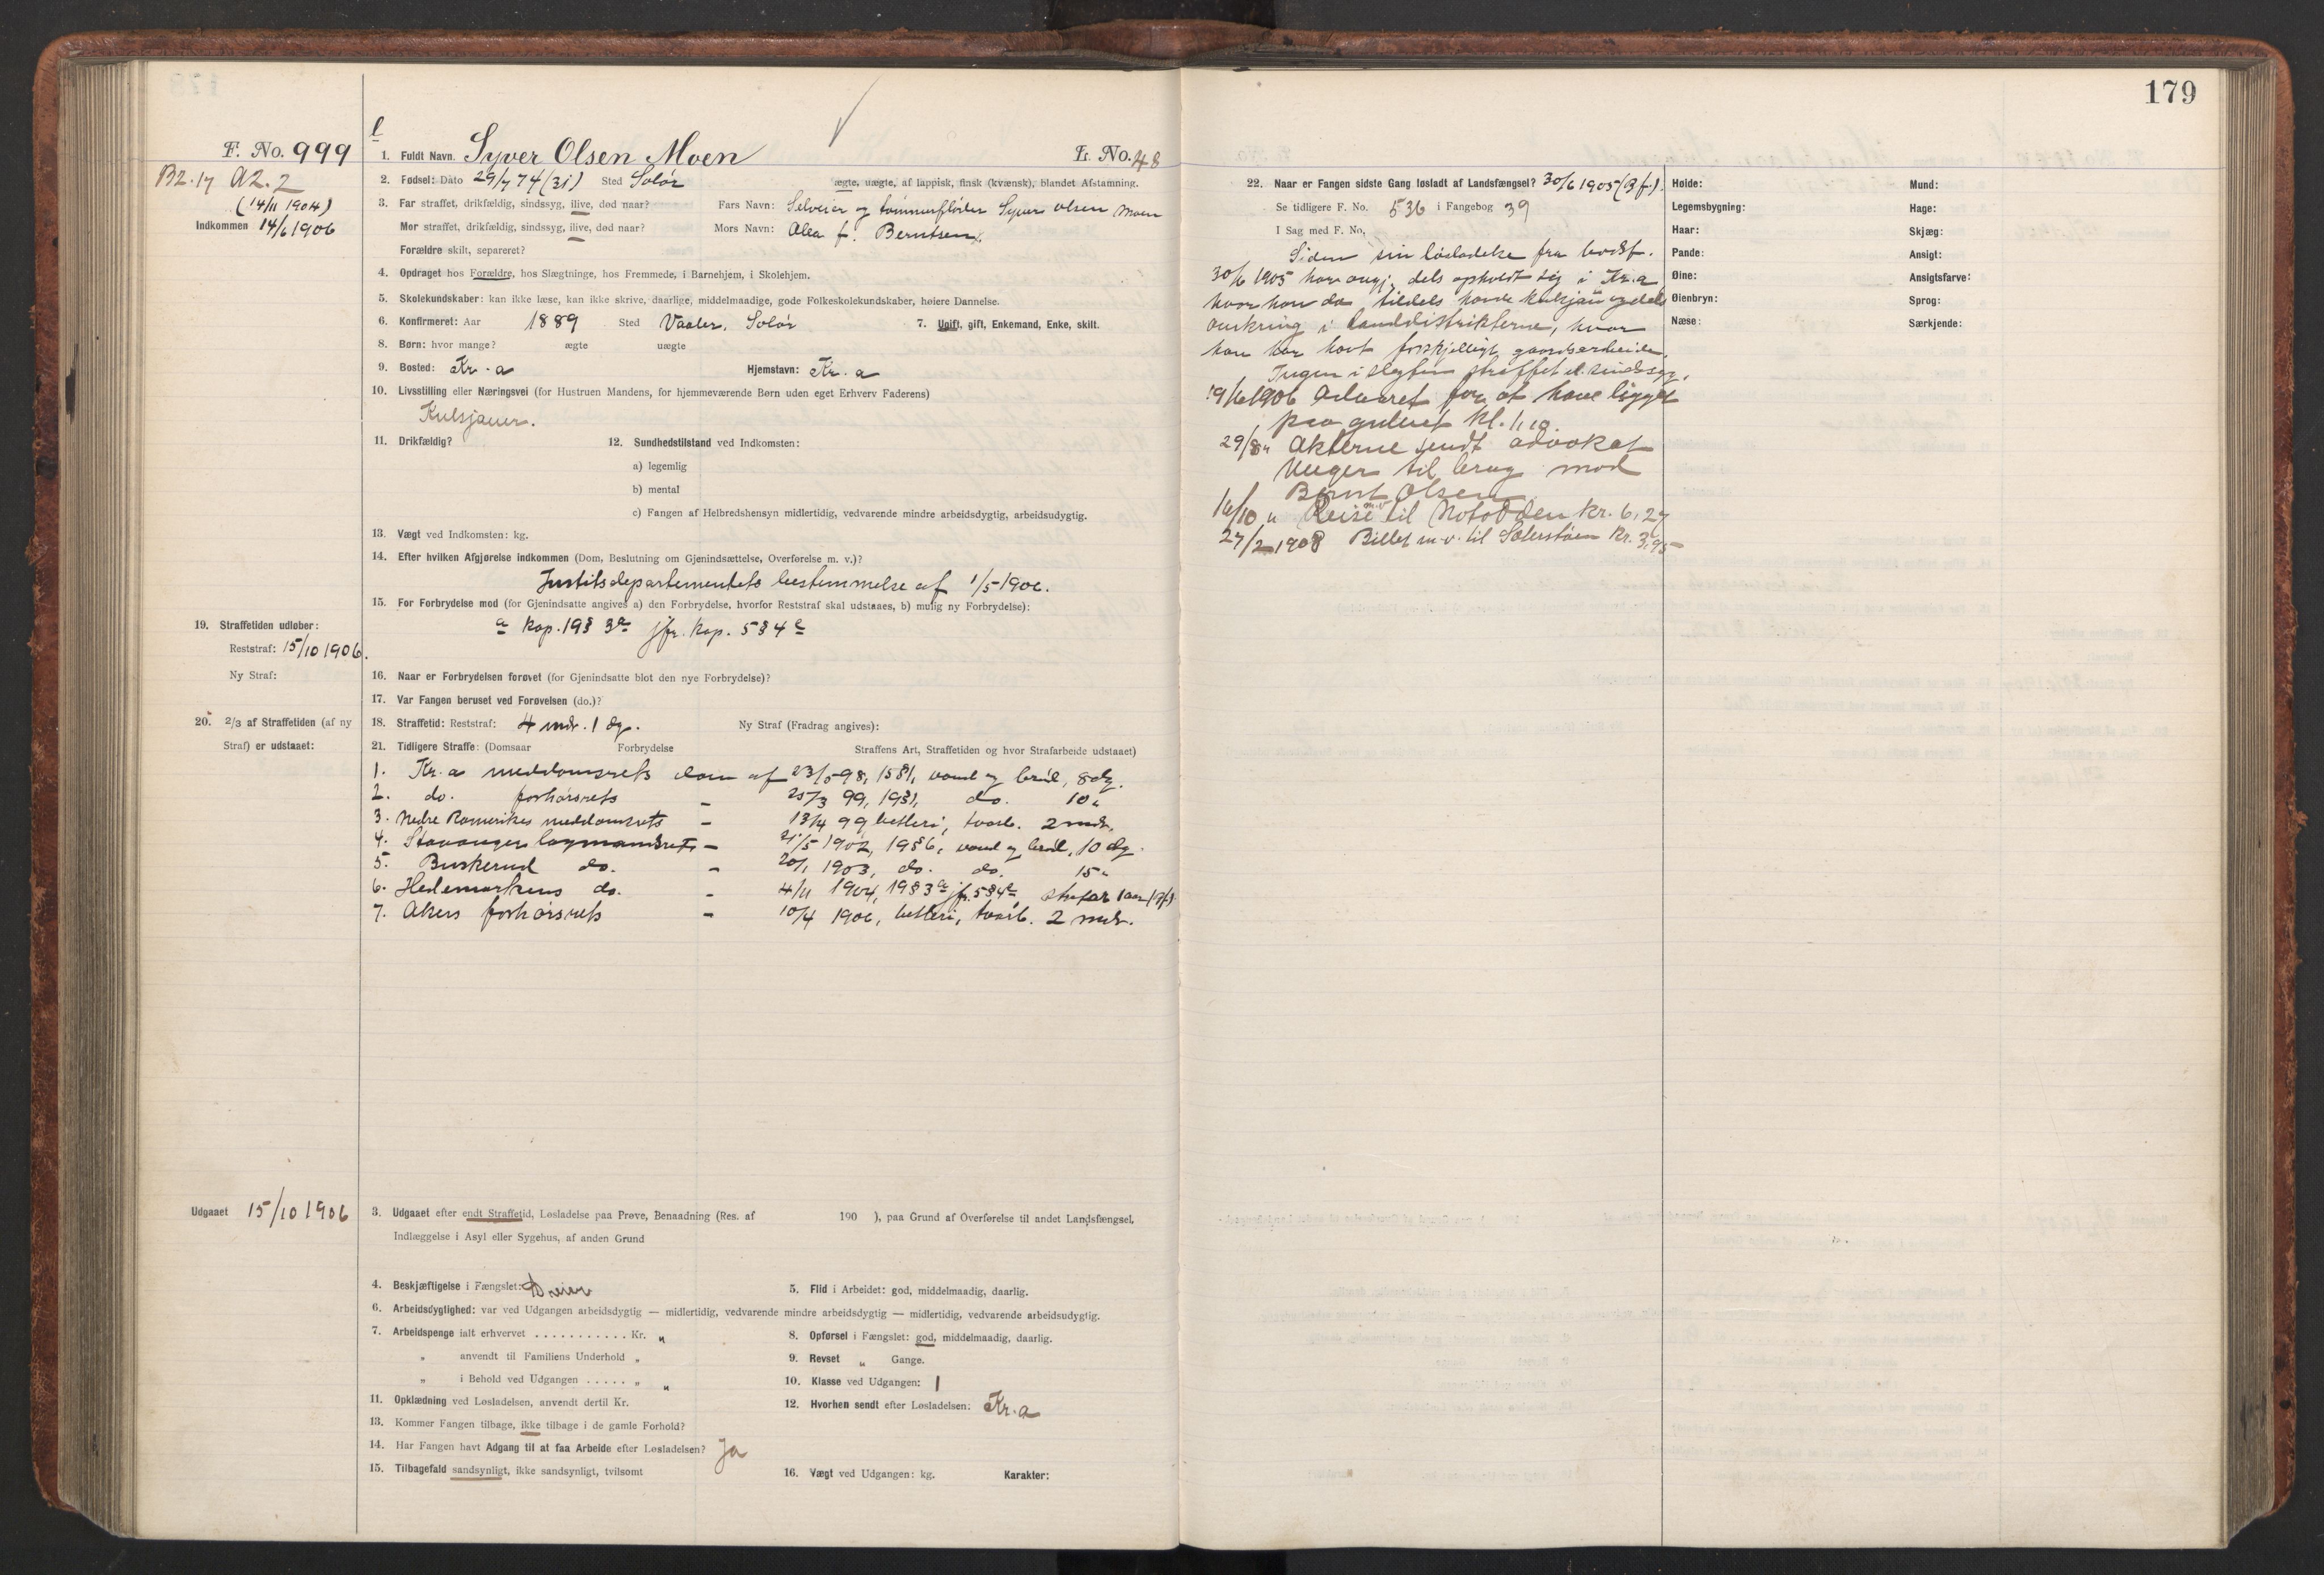 179
F. No. 999
l
1. Fuldt Navn. Syver Olsen Moen
L. No. 48
Bz. 17 A2. 2
(14/11 1904)
Indkommen 14/6 1906
2. Fødsel: Dato 29/7 74 (31) Sted Solør
ægte, uægte, af lappisk, finsk (kvænsk), blandet Afstamning.
3. Far straffet, drikfældig, sindssyg, ilive, død naar? Fars Navn: Selveier og tømmerfløder Syver Olsen Moen
Mor straffet, drikfældig, sindssyg, ilive, død naar? Mors Navn: Olea f. Berntsen.
Forældre skilt, separeret?
4. Opdraget hos Forældre, hos Slægtninge, hos Fremmede, i Barnehjem, i Skolehjem.
5. Skolekundskaber: kan ikke læse, kan ikke skrive, daarlige, middelmaadige, gode Folkeskolekundskaber, høiere Dannelse.
6. Konfirmeret: Aar 1889 Sted Vaaler, Solør 7. Ugift, gift, Enkemand, Enke, skilt.
8. Børn: hvor mange? ægte uægte
9. Bosted: Kr.a Hjemstavn: Kr.a
10. Livsstilling eller Næringsvei (for Hustruen Mandens, for hjemmeværende Børn uden eget Erhverv Faderens)
Kulsjauer.
11. Drikfældig? 12. Sundhedstilstand ved Indkomsten:
a) legemlig
b) mental
c) Fangen af Helbredshensyn midlertidig, vedvarende mindre arbeidsdygtig, arbeidsudygtig.
13. Vægt ved Indkomsten: kg.
14. Efter hvilken Afgjørelse indkommen (Dom, Beslutning om Gjenindsættelse, Overførelse m. v.)?
Justitsdepartementets bestemmelse af 1/5 1906.
15. For Forbrydelse mod (for Gjenindsatte angives a) den Forbrydelse, hvorfor Reststraf skal udstaaes, b) mulig ny Forbrydelse):
a kap. 19 § 3a jfr. kap. 5 § 4
19. Straffetiden udløber:
Reststraf: 15/10 1906.
Ny Straf:
16. Naar er Forbrydelsen forøvet (for Gjenindsatte blot den nye Forbrydelse)?
17. Var Fangen beruset ved Forøvelsen (do.)?
20. 2/3 af Straffetiden (af ny
Straf) er udstaaet:
18. Straffetid: Reststraf: 4 mdr. 1 dg. Ny Straf (Fradrag angives):
21. Tidligere Straffe: (Domsaar Forbrydelse Straffens Art, Straffetiden og hvor Strafarbeide udstaaet)
1. Kr.a meddomsrets dom af 23/5 98, 15§1, vand og brød, 8 dg.
2. do. forhørsrets — 25/3 99, 19§1, do. 10 „
3. Nedre Romerikes meddomsrets — 13/4 99 betleri, tvarb. 2 mdr.
4. Stavanger lagmandsrets — 21/5 1902, 19§6, vand og brød, 10 dg.
5. Buskerud do. — 20/1 1903, do. do. 15 „
6. Hedemarkens do. — 4/11 1904, 19§3a jfr. 5§4, strafarb 1 aar (Bf.)
7. Akers forhørsrets — 10/4 1906, betleri, tvarb. 2 mdr.
Udgaaet 15/10 1906
3. Udgaaet efter endt Straffetid, Løsladelse paa Prøve, Benaadning (Res. af 190 ), paa Grund af Overførelse til andet Landsfængsel,
Indlæggelse i Asyl eller Sygehus, af anden Grund
4. Beskjæftigelse i Fængslet: Dreier 5. Flid i Arbeidet: god, middelmaadig, daarlig.
6. Arbeidsdygtighed: var ved Udgangen arbeidsdygtig — midlertidig, vedvarende mindre arbeidsdygtig — midlertidig, vedvarende arbeidsudygtig.
7. Arbeidspenge ialt erhvervet ........... Kr. „ 8. Opførsel i Fængslet: god, middelmaadig, daarlig.
„ anvendt til Familiens Underhold „ 9. Revset „ Gange.
„ i Behold ved Udgangen ..... „ „ 10. Klasse ved Udgangen: 1
11. Opklædning ved Løsladelsen, anvendt dertil Kr. 12. Hvorhen sendt efter Løsladelsen: Kr.a
13. Kommer Fangen tilbage, ikke tilbage i de gamle Forhold?
14. Har Fangen havt Adgang til at faa Arbeide efter Løsladelsen? Ja
15. Tilbagefald sandsynligt, ikke sandsynligt, tvilsomt 16. Vægt ved Udgangen: kg. Karakter:
22. Naar er Fangen sidste Gang løsladt af Landsfængsel? 30/6 1905 (Bf.)
Se tidligere F. No. 536 i Fangebog 39
I Sag med F. No.
Siden sin løsladelse fra bodsf.
30/6 1905 har angj. dels opholdt sig i Kr.a
hvor han da tildels havde kulsjau og dels
omkring i landdistrikterne, hvor
han har havt forskjelligt gaardsarbeide.
Ingen i slegten straffet el. sindssyg.
19/6 1906 Advaret for at have ligget
paa gulvet kl. 1,10.
29/8 „ Akterne sendt advokat
Unger til brug mod
Bernt Olsen
16/10 „ Reise m.v. til Notodden kr. 6,27
27/2 1908 Billet m.v. til Sæterstøen kr. 3,95
Høide:
Legemsbygning:
Haar:
Pande:
Øine:
Øienbryn:
Næse:
Mund:
Hage:
Skjæg:
Ansigt:
Ansigtsfarve:
Sprog:
Særkjende: